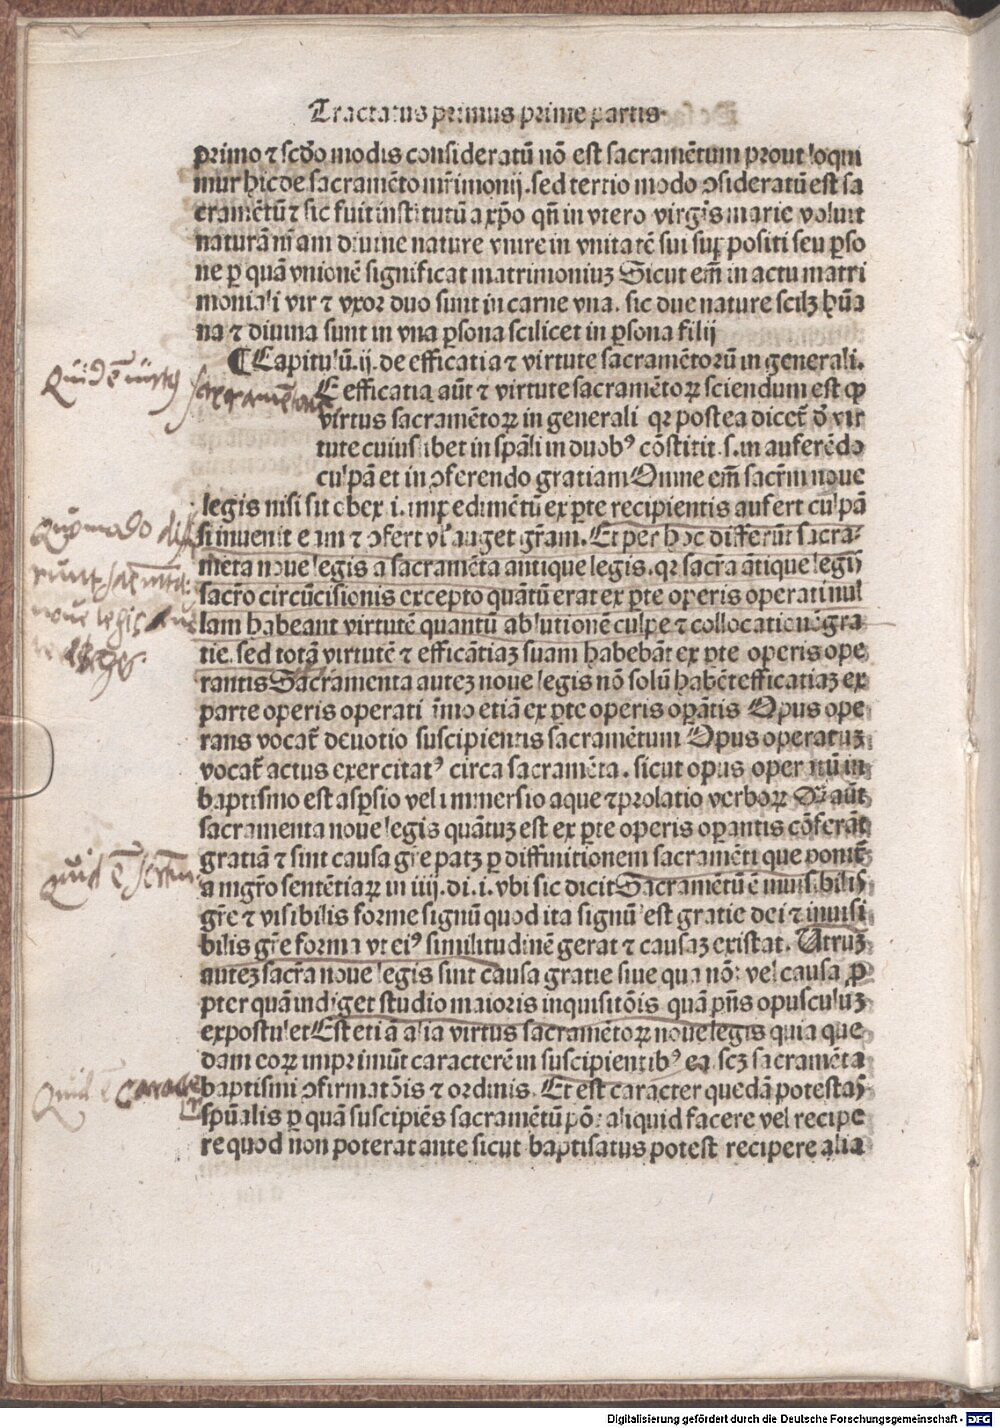 Tractatus primus prime partis
primo ⁊ scďo modis consideratū nō est sacramētum prout loqui
mur hic de sacramēto mr̄imonij. sed tertio modo ɔsideratū est sa
cramētū ⁊ sic fuit institutū a xp̄o qn̄ in vtero virgīs marie voluit
naturā nr̄am diuine nature vnire in vnitatē sui suppositi seu ꝑso
ne ꝑ quā vnionē significat matrimoniuꝫ Sicut em̄ in actu matri
moniali vir ⁊ vxor duo sunt in carne vna. sic due nature scilꝫ hūa
na ⁊ diuina sunt in vna ꝑsona scilicet in ꝑsona filij
¶ Capitulū .ij. de efficatia ⁊ virtute sacramētorū in generali.
Quid ē virtus sacramentorum
E efficatia aūt ⁊ virtute sacramētoꝝ sciendum est ꝙ
virtus sacramētoꝝ in generali qꝛ postea dicet̄ ď vir
tute cuiuslibet in sp̄ali in duobꝰ cōstitit .s. in auferēdo
culpā et in ɔferendo gratiam Omne em̄ sacrm̄ noue
legis nisi sit obex .i. impedimētū ex ꝑte recipientis aufert culpā
Quomodo diffe
si inuenit eam ⁊ ɔfert vl̓ auget gr̄am. Et per hoc differūt sacra-
runt sacramēta
mēta noue legis a sacramēta antique legis. qꝛ sacr̄a ātique legis
noue legis
sacro circūcisionis excepto quātū erat ex ꝑte operis operati nul
lam habeant virtutē quantū ablutionē culpe ⁊ collocationē gra
tie. sed totā virtutē ⁊ efficātiaꝫ suam habebāt ex ꝑte operis ope
rantis Sacramenta auteꝫ noue legis nō solū habēt efficatiaꝫ ex
parte operis operati īmo etiā ex ꝑte operis oꝑātis Opus ope
rans vocat̄ deuotio suscipientis sacramētum Opus operatuꝫ
vocat̄ actus exercitatꝰ circa sacramēta. sicut opus operatū in
baptismo est asꝑsio vel immersio aque ⁊ prolatio verboꝝ Qꝛ aūt
sacramenta noue legis quātuꝫ est ex ꝑte operis oꝑantis cōferāt
gratiā ⁊ sint causa gr̄e patꝫ ꝑ diffinitionem sacramēti que ponit̄
quid ē sacrm̄
a mgr̄o sentētiaꝝ in iiij. di. i. vbi sic dicit Sacramētū ē inuisibilis
gr̄e ⁊ visibilis forme signū quod ita signū est gratie dei ⁊ inuisi
bilis gr̄e forma vt eiꝰ similitudinē gerat ⁊ causaꝫ existat. Utruꝫ
auteꝫ sacr̄a noue legis sint causa gratie siue qua nō: vel causa ꝓ
pter quā indiget studio maioris inquisitōis quā pn̄s opusculuꝫ
expostulet Est etiā alia virtus sacramētoꝝ noue legis quia que
dam eoꝝ imprimūt caracterē in suscipientibꝰ ea scꝫ sacramēta
Quid ē caracter
baptismi ɔfirmatōis ⁊ ordinis. Et est caracter quedā potestas
spūalis ꝑ quā suscipiēs sacramētū pōt aliquid facere vel recipe
re quod non poterat ante sicut baptisatus potest recipere alia
Digitalisierung gefördert durch die Deutsche Forschungsgemeinschaft - DFG